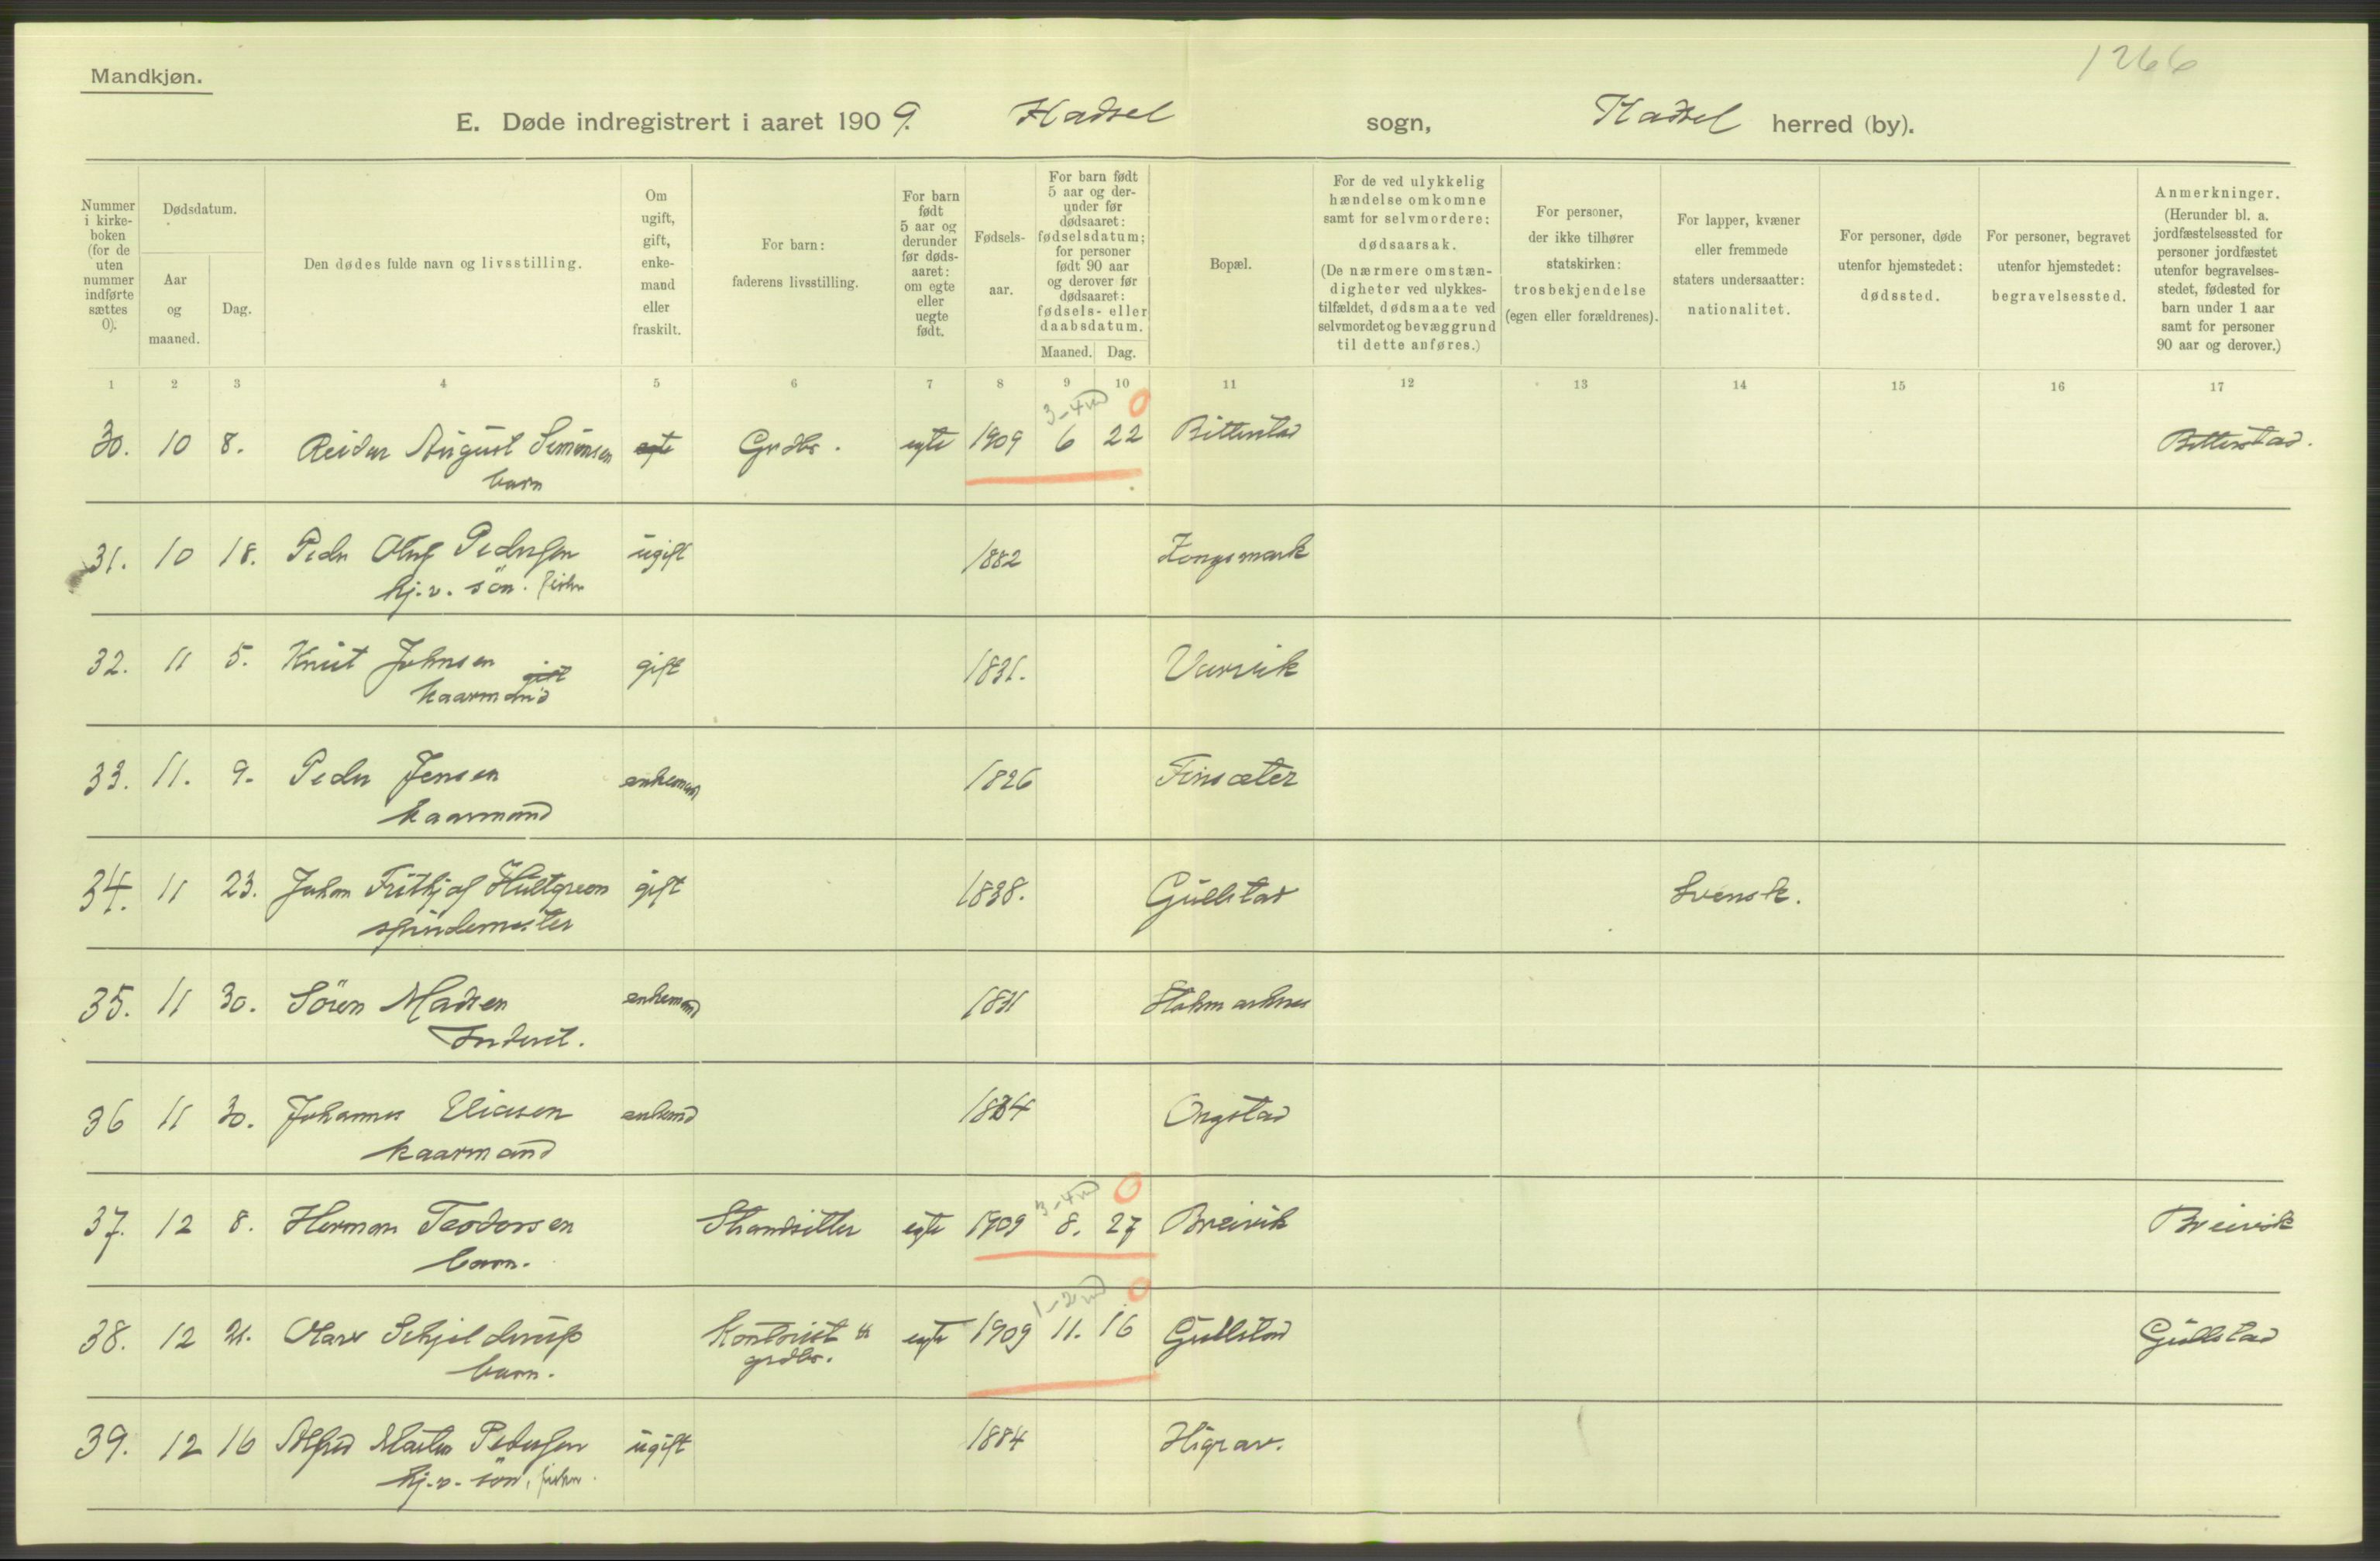 1266
Mandkjøn.
E. Døde indregistrert i aaret 1909. Hadsel sogn, Hadsel herred (by).
Nummer i kirke-boken (for de uten nummer indførte sættes 0).
Dødsdatum.
Aar og maaned.
Dag.
Den dødes fulde navn og livsstilling.
Om ugift, gift, enke-mand eller fraskilt.
For barn: faderens livsstilling.
For barn født 5 aar og derunder før døds-aaret: om egte eller uegte født.
Fødsels-aar.
For barn født 5 aar og der-under før dødsaaret: fødselsdatum; for personer født 90 aar og derover før dødsaaret: fødsels- eller daabsdatum.
Maaned. Dag.
Bopæl.
For de ved ulykkelig hændelse omkomne samt for selvmordere: dødsaarsak. (De nærmere omstæn-digheter ved ulykkes-tilfældet, dødsmaate ved selvmordet og bevæggrund til dette anføres.)
For personer, der ikke tilhører statskirken: trosbekjendelse (egen eller forældrenes).
For lapper, kvæner eller fremmede staters undersaatter: nationalitet.
For personer, døde utenfor hjemstedet: dødssted.
For personer, begravet utenfor hjemstedet: begravelsessted.
Anmerkninger. (Herunder bl. a. jordfæstelsessted for personer jordfæstet utenfor begravelses-stedet, fødested for barn under 1 aar samt for personer 90 aar og derover.)
1 2 3 4 5 6 7 8 9 10 11 12 13 14 15 16 17
3-4 m 0
30. 10 8. Reidar August Simonsen egte Grdbr. egte 1909 6 22 Bitterstad Bitterstad.
barn
31. 10 18. Peder Oluf Pedersen ugift 1882 Kongsmark
hj. v. søn. fisker
32. 11 5. Knut Johnsen gift gift 1831. Varvik
kaarmand
33. 11. 9. Peder Jensen enkemand 1826 Finsæter
kaarmand
34. 11 23. Johan Frithjof Hultgreen gift 1838. Gullstad Svensk.
spindemester
35. 11 30. Sören Madsen enkemand 1831 Stokmarknes
Inderst.
36 11 30. Johannes Eliasen enkemd 1834 Ongstad
kaarmand
3-4 m 0
37. 12 8. Herman Teodorsen Strandsitter egte 1909 8. 27 Breivik Breivik
barn.
1-2 m 0
38. 12 21. Olav Schjelderup Kontorist & egte 1909 11. 16 Gullstad Gullstad
barn. grdbr.
39. 12 16 Alfred Martin Pedersen ugift 1884 Higrav.
hj. v. søn, fisker.